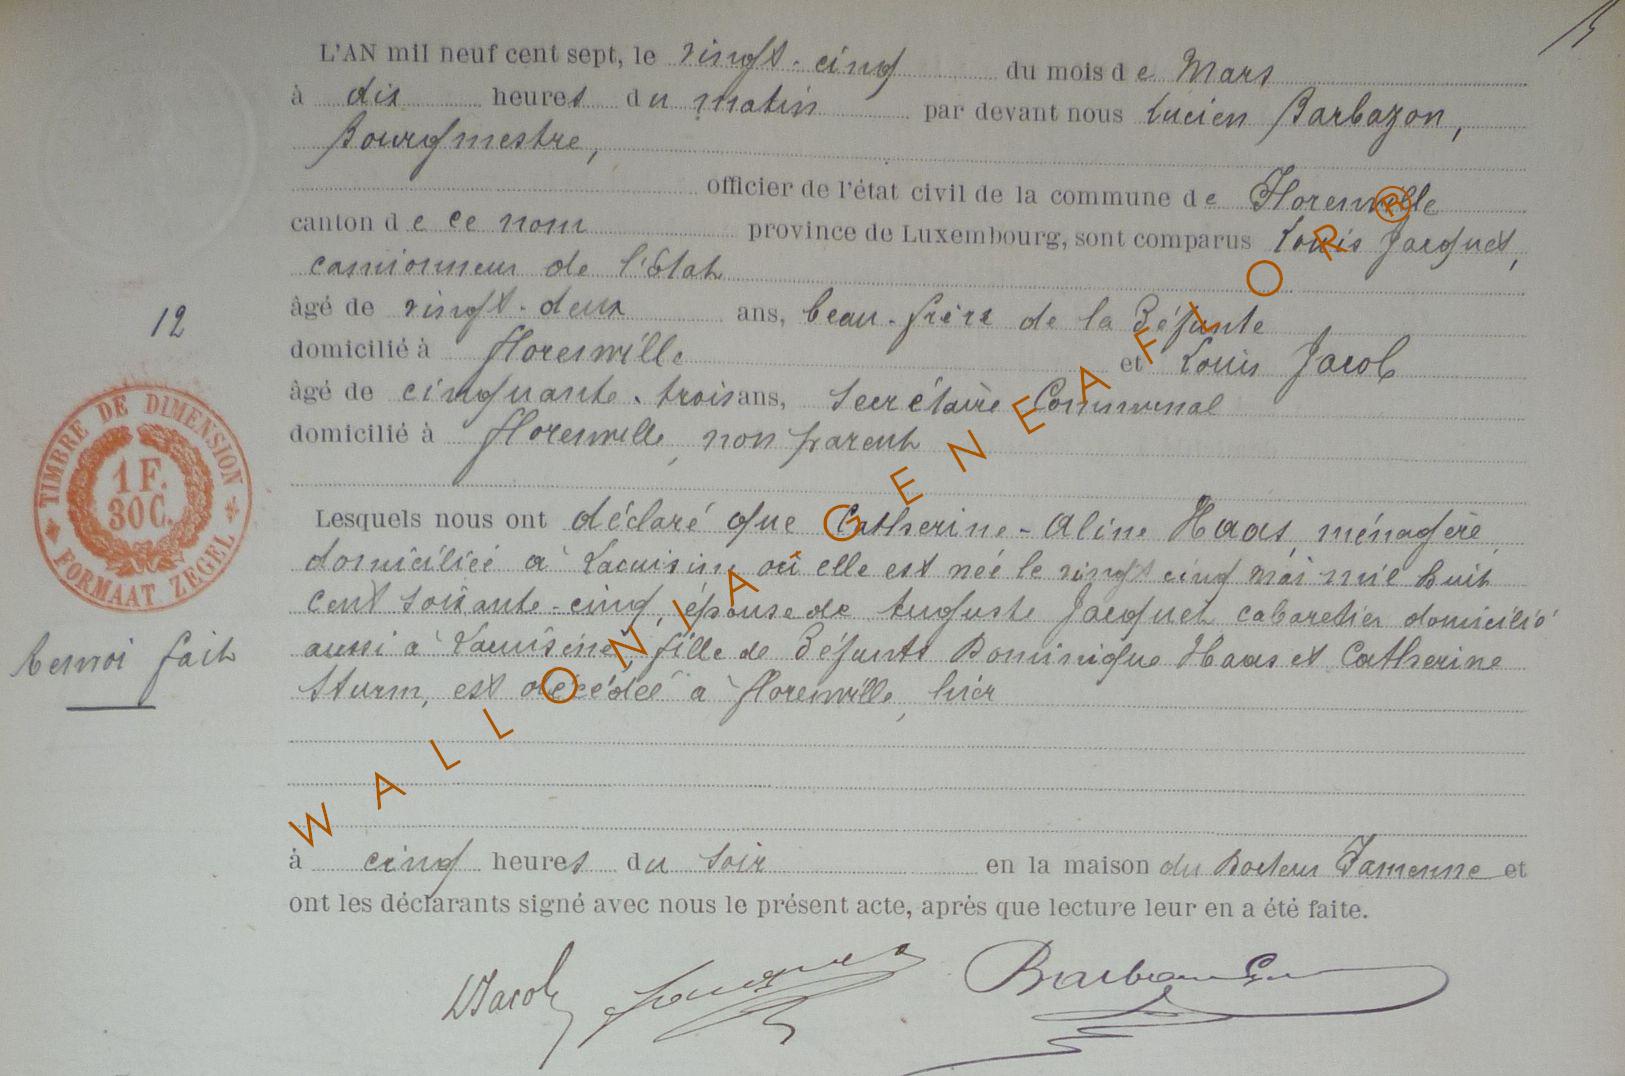 L'AN mil neuf cent sept, le vingt-cinq du mois de Mars
à dix heures du matin par devant nous Lucien Barbazon,
Bourgmestre,
officier de l'état civil de la commune de Florenville
canton de ce nom province de Luxembourg, sont comparus Louis Jacquet,
camionneur de l'Etat
12
âgé de vingt-deux ans, beau-frère de la Défunte
domicilié à Florenville et Louis Jacob
âgé de cinquante-trois ans, Secrétaire Communal
domicilié à Florenville, non parent
TIMBRE DE DIMENSION
1 F.
30 C.
FORMAAT ZEGEL
Lesquels nous ont déclaré que Catherine-Aline Haas, ménagère,
domiciliée à Lacuisine où elle est née le vingt cinq mai mil huit
cent soixante-cinq, épouse de Auguste Jacquet cabaretier domicilié
aussi à Lacuisine, fille de Défunts Dominique Haas et Catherine
Sturm, est décédée à Florenville, hier
Renvoi fait
à cinq heures du soir en la maison du Docteur Famenne et
ont les déclarants signé avec nous le présent acte, après que lecture leur en a été faite.
LJacob Jacquet Barbazon
WALLONIA-GENEAFLOR®